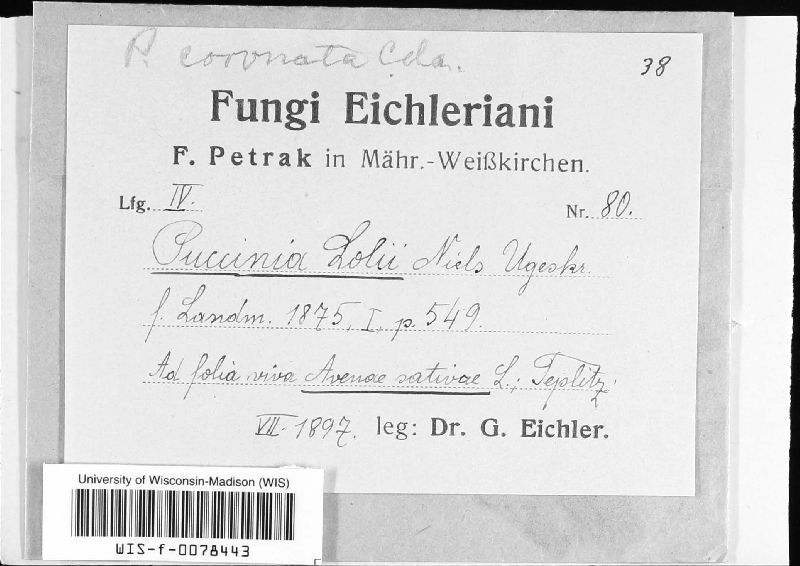 P. coronata Cda.
38
Fungi Eichleriani
F. Petrak in Mähr.-Weißkirchen.
Lfg. IV. Nr. 80.
Puccinia Lolii Niels Ugeskr.
f. Landm. 1875, I, p. 549.
Ad folia viva Avenae sativae L.; Teplitz
VII. 1897. leg: Dr. G. Eichler.
University of Wisconsin-Madison (WIS)
WIS-f-0078443